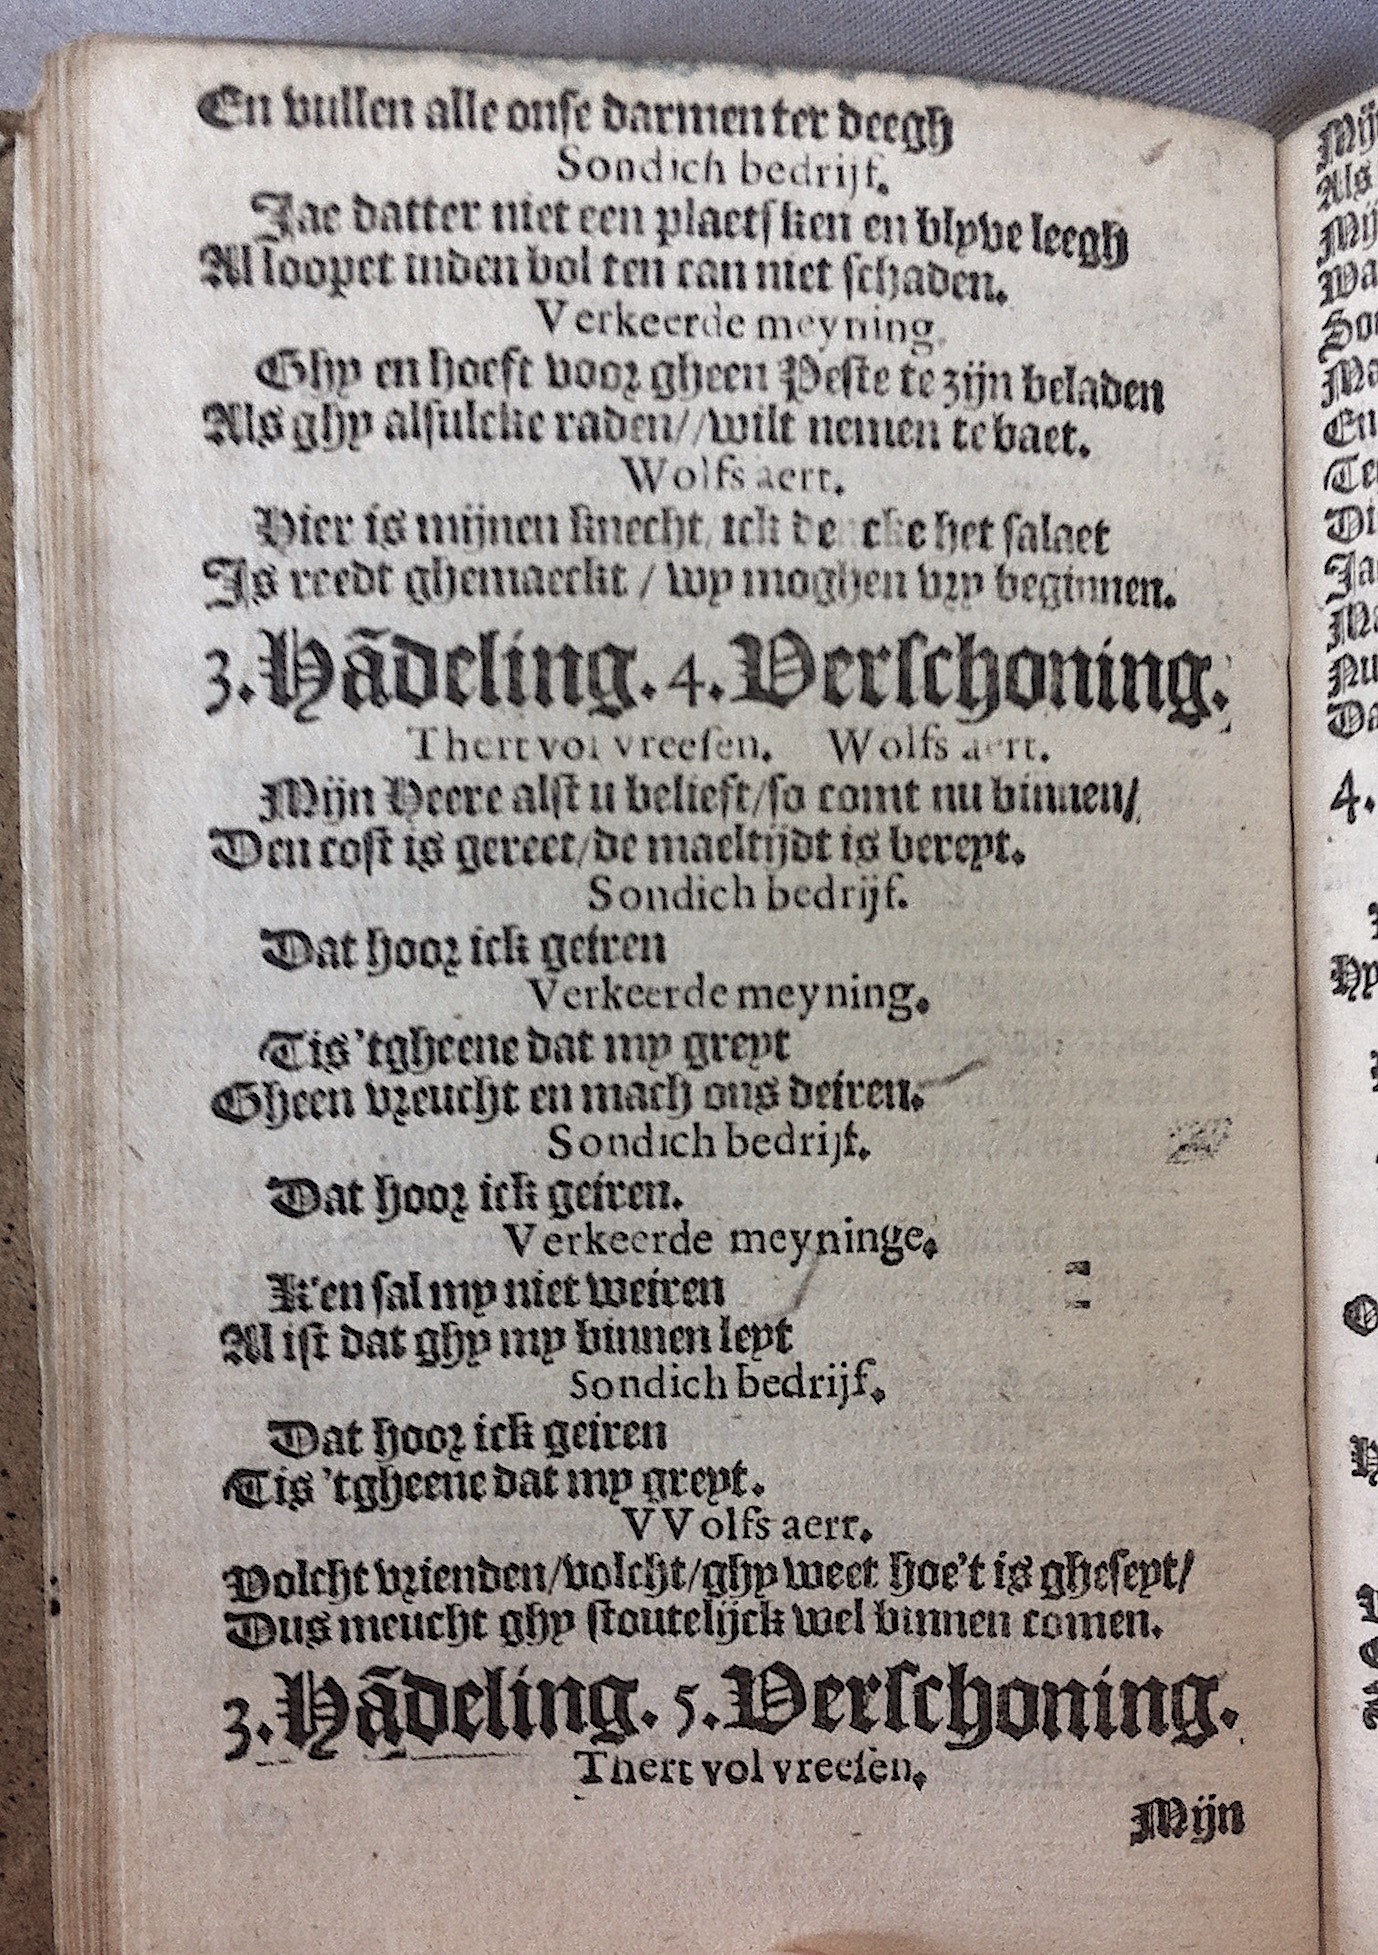 En vullen alle onse darmen ter deegh
Sondich bedrijf.
Jae datter niet een plaetsken en blyve leegh
Al loopet inden bol ten can niet schaden.
Verkeerde meyning.
Ghy en hoeft voor gheen Peste te zijn beladen
Als ghy alsulcke raden//wilt nemen te baet.
Wolfs aert.
Hier is mijnen knecht, ick dencke het salaet
Is reedt ghemaeckt / wy moghen vry beginnen.
3. Hãdeling. 4. Verschoning.
Thert vol vreesen. Wolfs aert.
Mijn Heere alst u belieft/so comt nu binnen/
Den cost is gereet/de maeltijdt is bereyt.
Sondich bedrijf.
Dat hoor ick geiren
Verkeerde meyning.
Tis 'tgheene dat my greyt
Gheen vreucht en mach ons deiren.
Sondich bedrijf.
Dat hoor ick geiren.
Verkeerde meyninge.
K'en sal my niet weiren
Al ist dat ghy my binnen leyt
Sondich bedrijf.
Dat hoor ick geiren
Tis 'tgheene dat my greyt.
VVolfs aert.
Volcht vrienden/volcht/ghy weet hoe't is gheseyt/
Dus meucht ghy stoutelijck wel binnen comen.
3. Hãdeling. 5. Verschoning.
Thert vol vreesen.
Mijn
Mij
Als
Mij
Sou
Ma
En
Te
Di
Ja
Ma
Nu
Da
4.
Hy